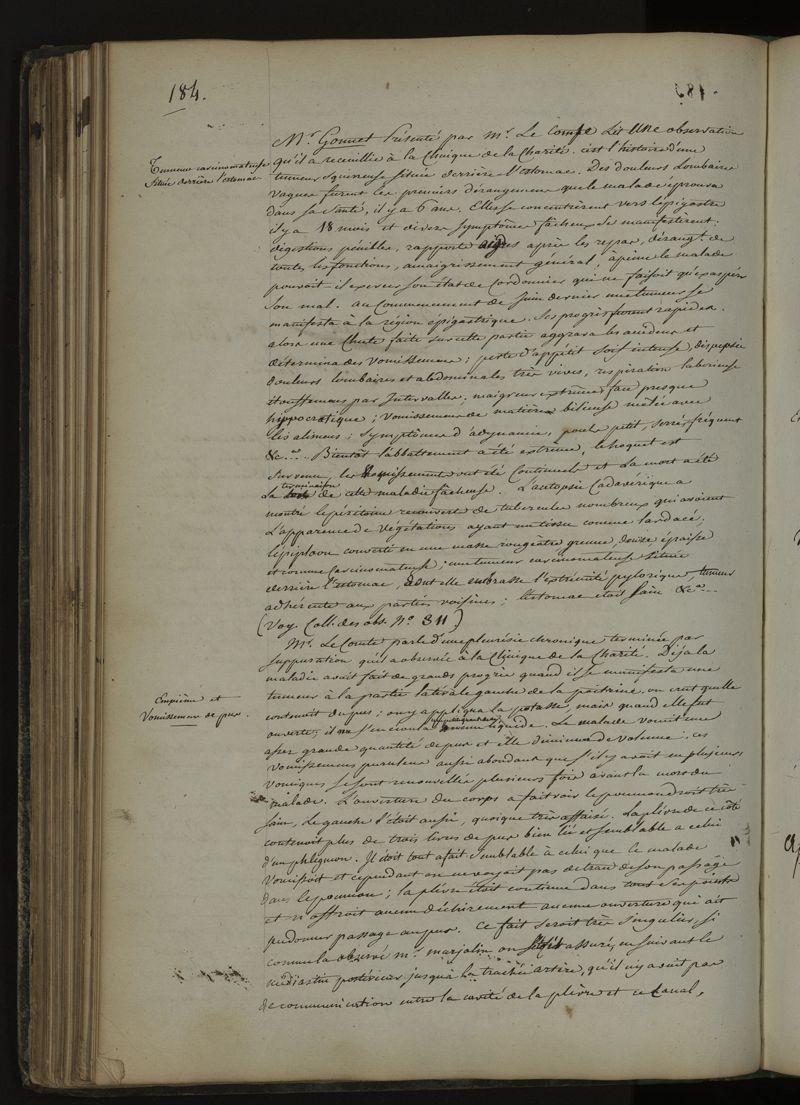 184.
Mr. Gonnet Présenté par Mr. Le Comte Lit une observation
Tumeur carcinomateuse
Située derrière l'estomac
qu'il a receuillie à la Clinique de la Charité. c'est l'histoire d'une
tumeur squirreuse située derrière l'estomac. Des douleurs Lombaires
vagues furent les premiers dérangemens que le malade éprouva
dans sa santé, il y a 6 ans. Elles se concentrèrent vers l'épigastre
il y a 18 mois et divers symptômes fâcheux se manifestèrent:
digestions pénibles, rapports aigres après les repas, dérangt. de
toutes les fonctions, amaigrissement général, à peine le malade
pouvait-il exercer son état de Cordonnier qui ne faisoit qu'exaspérer
son mal. au Commencement de Juin dernier une tumeur se
manifesta à la région épigastrique. Ses progrès furent rapides.
alors une Chute faite sur cette partie aggrava les accidens et
détermina des vomissemens; perte d'appétit soif intense, dispepsie
douleurs lombaires et abdominales très vives, respiration laborieuse
étouffemens par Intervalles, maigreur extrême, face presque
hippocratique; vomissemens de matières bilieuses mêlées avec
les alimens; symptômes d'adynamie, pouls petit, serré, fréquent
&c.a... Bientôt l'abbattement a été extrême, le hoquet est
survenu, les vomissemens ont été Continuels et la mort a été
la terminaison de cette maladie fâcheuse. L'autopsie Cadavérique a
montré le péritoine recouvert de tubercules nombreux qui avoient
L'apparence de végétations ayant un tissu comme lardacé;
l'épiploon converti en une masse rougeâtre grenue, dense épaisse
et comme Carcinomateuse; une tumeur carcinomateuse située
derrière l'estomac, dont elle embrasse l'extrémité pylorique, tumeur
adhérente aux parties voisines; l'estomac étoit sain &c.a...
(Voy. Coll. des obs. No. 311)
Mr. Le Comte parle d'une pleurésie chronique terminée par
suppuration qu'il a observée à la Clinique de la Charité. Déja la
maladie avait fait de grands progrès quand il se manifesta une
Empième et
Vomissement de pus.
tumeur à la partie latérale gauche de la poitrine. on crut qu'elle
contenoit du pus; on y appliqua la potasse, mais quand elle fut
ouverte, il ne s'en écoula liquide. Le malade vomit une
assez grande quantité de pus et elle diminua de volume. ces
vomissemens purulens aussi abondans que s'il y avait eu plusieurs
vomiques se sont renouvellés plusieurs fois avant la mort du
malade. L'ouverture du corps a fait voir le poumon droit très
sain, le gauche l'étoit aussi, quoique très affaisé. La plèvre de ce côté
contenoit plus de trois livres de pus bien lié et semblable a celui
d'un phlegmon. Il étoit tout afait semblable à celui que le malade
vomissoit et cependant on ne voyait pas de trace de son passage
dans le poumon; la plèvre étoit continue dans tous ses points
et n'offroit aucun déchirement aucune ouverture qui ait
pu donner passage au pus. Ce fait seroit très singulier, si
comme l'a observé Mr. marjolin on s'étoit assuré, en suivant le
médiastin postérieur jusqu'à la trachée artère, qu'il n'y avoit pas
de communication entre la cavité de la plèvre et ce canal,